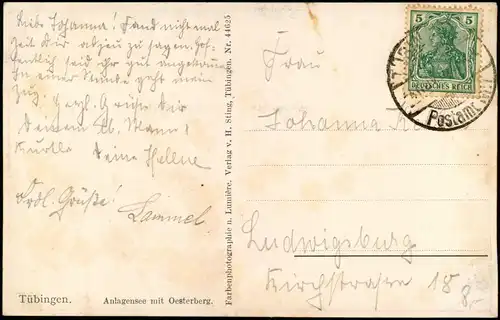 Liebe Johanna! Fand nicht mal
Zeit Dir adjeu zu sagen. Hof-
fentlich seid ihr gut angekommen
In einer Minute geht mein
Zug. Herzl. Grüße Dir
Deinem lb. Mann,
Kurtle Deine Hellne
Frdl. Grüße!
Lammel
Tübingen. Anlagensee mit Oesterberg.
Farbenphotographie n. Lumière. Verlag v. H. Sting, Tübingen. Nr. 44625
5 5
DEUTSCHES REICH
Postamt
Frau
Johanna
Ludwigsburg
Kirchstrasse 18
8.-